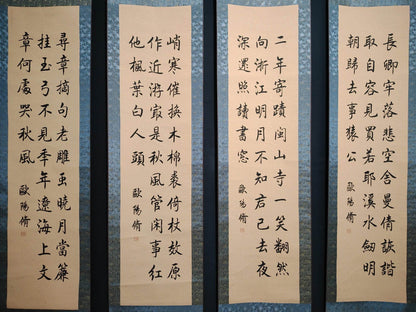 長卿牢落悲空舍曼倩詼諧
取自容見買若耶溪水劒明
朝歸去事猿公
歐陽脩
二年寄蹟閩山寺一笑翻然
向浙江明月不知君已去夜
深還照讀書窓
歐陽脩
峭寒催換木棉裘倚杖郊原
作近游冣是秋風管閑事紅
他楓葉白人頭
歐陽脩
尋章摘句老雕虫曉月當簾
挂玉弓不見秊年遼海上文
章何處哭秋風
歐陽脩